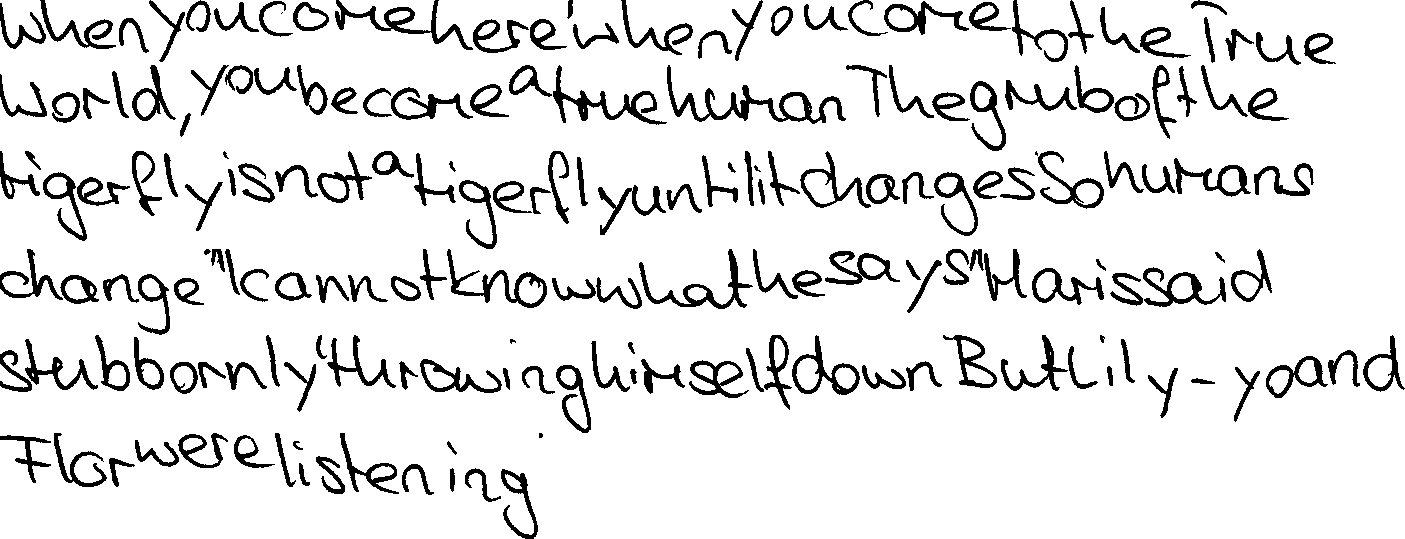 When you come here' when you come to the True
World, you become a true human The grub of the
tigerfly is not a tigerfly until it changes So humans
change" "I cannot know what he says" Haris said
stubbornly "throwing himself down But Lily-yo and
Flor were listening